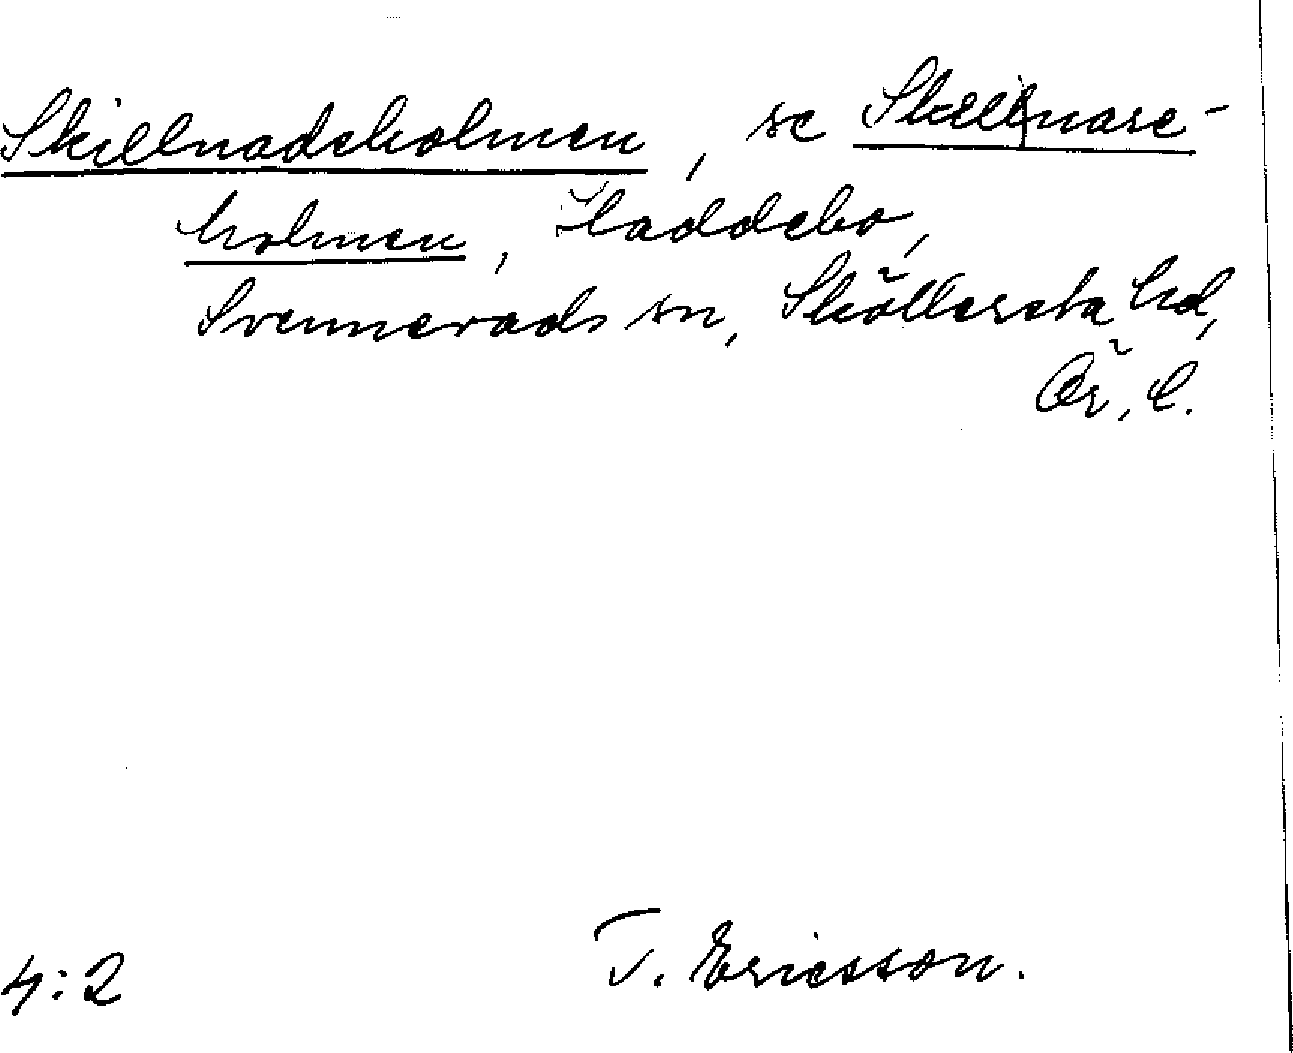 Skillnadeholmen, se Skillnare-
holmen, Haddebo,
Svennevads sn, Sköllersta hd,
Ör. l.
4:2 T. Ericsson.